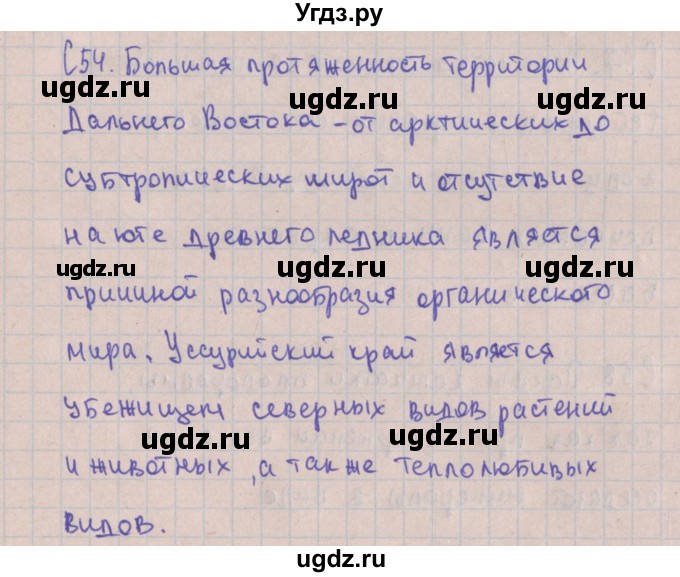 Угдз.ру
С54. Большая протяженность территории
ugdz.ru ugdz.ru ugdz.ru
Дальнего Востока - от арктических до
ugdz.ru
субтропических широт и отсутствие
ugdz.ru
на юге древнего ледника является
ugdz.ru ugdz.ru ugdz.ru
причиной разнообразия органического
мира. Уссурийский край является
ugdz.ru
убежищем северных видов растений
ugdz.ru ugdz.ru
и животных, а также теплолюбивых
ugdz.ru
видов.
ugdz.ru